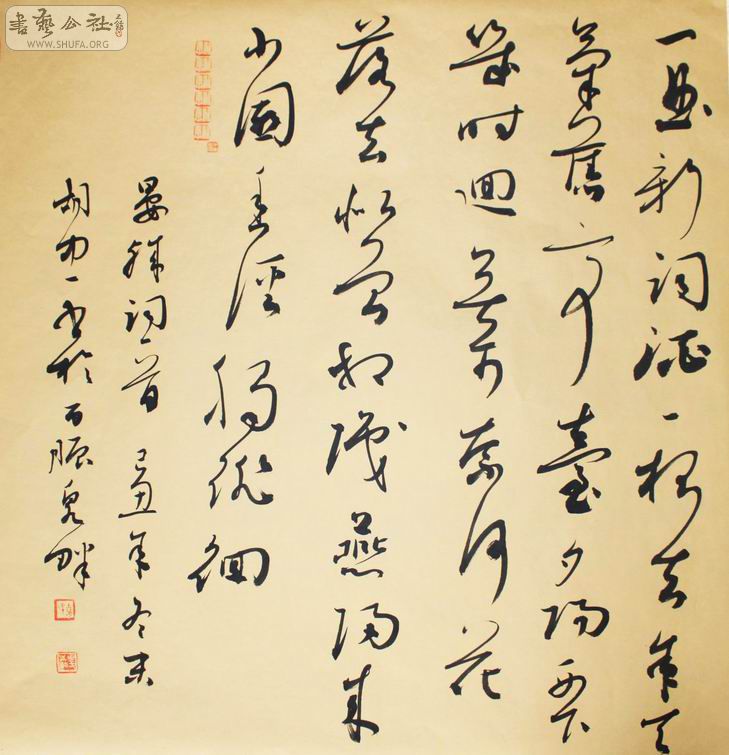 書藝公社
WWW.SHUFA.ORG
一曲新詞酒一杯去年天
氣舊亭臺夕陽西下
幾時迴無可奈何花
落去似曾相識燕歸來
小園香徑獨徘徊
晏殊詞一首 己丑年冬末
胡一書於百脈泉畔